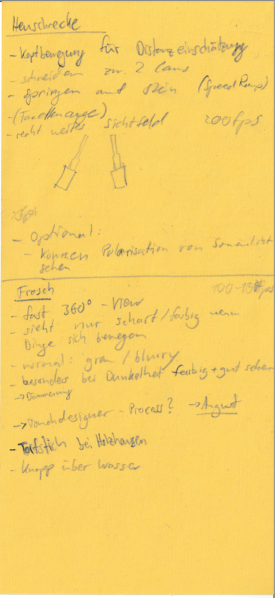 Heuschrecke
- Kopfbewegung für Distanzeinschätzung
- schneiden zu 2 Cams
- springen auf Stein (Speed Ramp)
- (Facettenauge)
- recht weites Sichtfeld 200fps
- Optional:
- können Polarisation von Sonnenlicht
sehen
Frosch
- fast 360° - View
- sieht nur scharf/farbig wenn
Dinge sich bewegen
- normal: grau/blurry
- besonders bei Dunkelheit farbig + gut sehen
→ Dämmerung
→ Sounddesigner - Process? → August
- Torfstich bei Holzhausen
- Knapp über Wasser